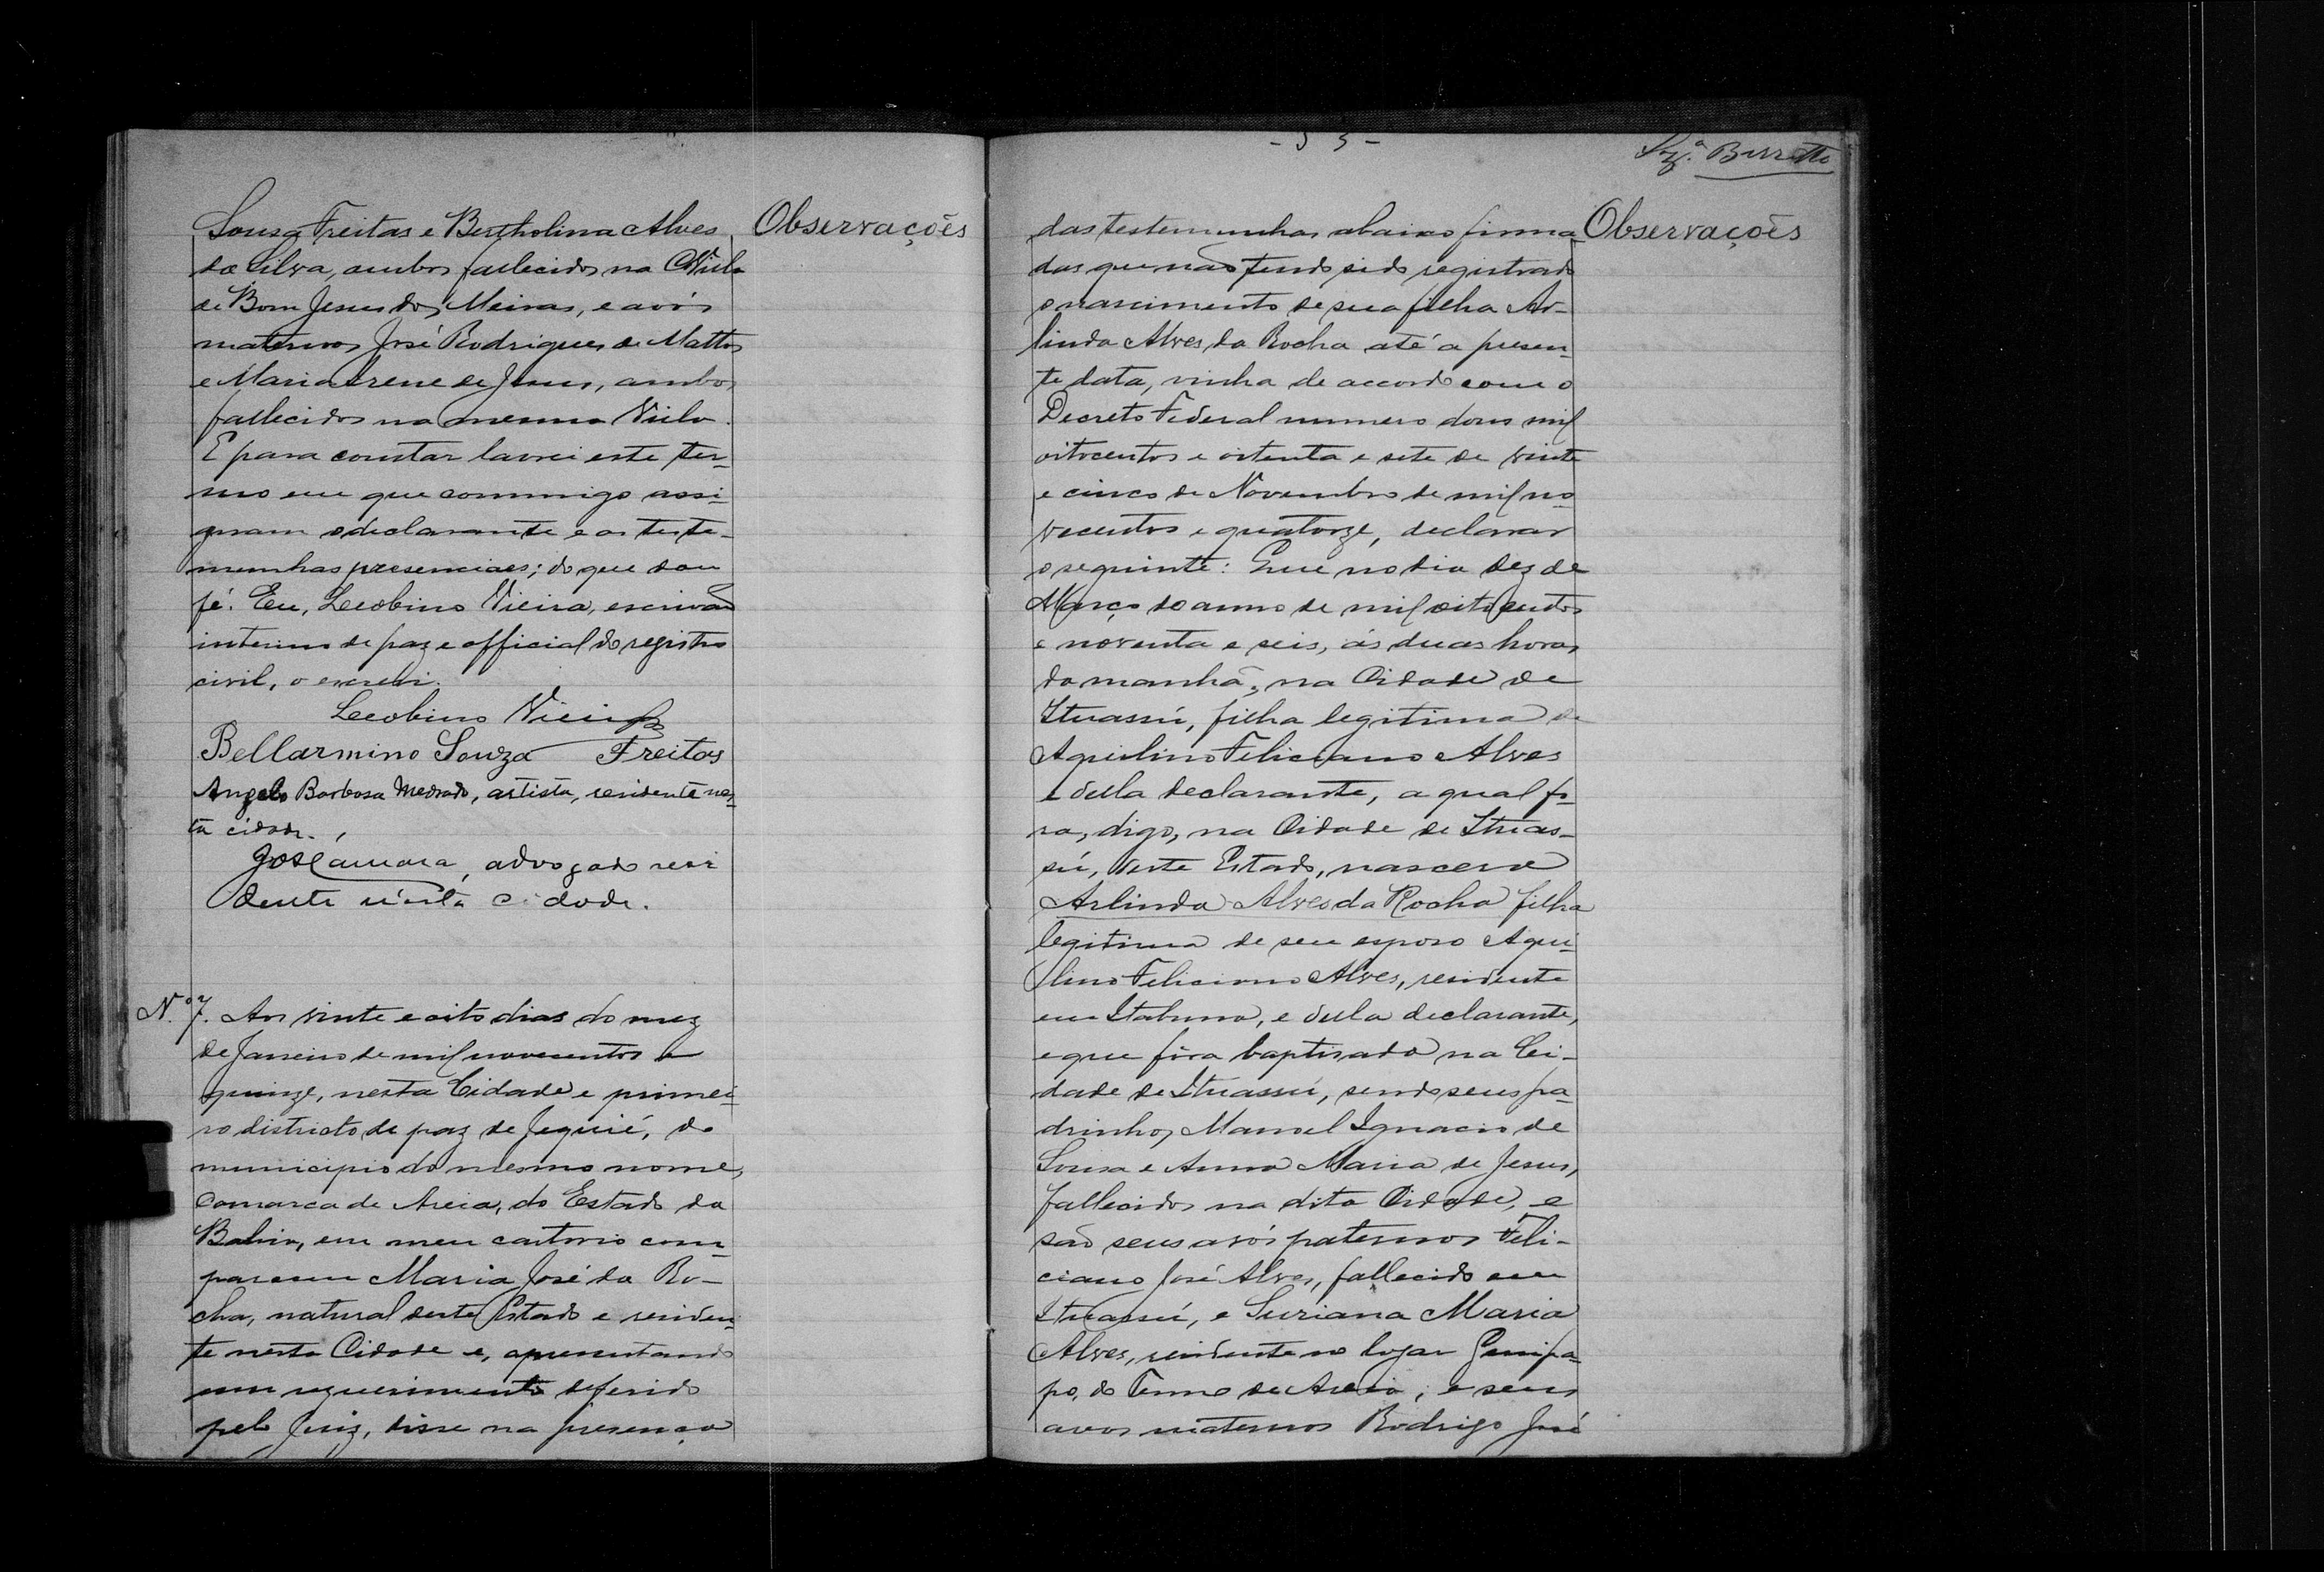 Sousa Freitas e Bertholina Alves
da Silva, ambos fallecidos na Villa
de Bom Jesus dos Meiras, e avós
maternos José Rodrigues de Mattos
e Maria Irene de Jesus, ambos
fallecidos na mesma Villa.
E para constar lavrei este ter-
mo em que commigo assi-
gnam o declarante e as teste-
munhas presenciaes; do que dou
fé. Eu, Leobino Vieira, escrivão
interino de paz e official do registro
civil, o escrevi.
Leobino Vieira
Bellarmino Souza Freitas
Angelo Barbosa Medrado, artista, residente nes-
ta cidade.
José, advogado resi
dente n'esta cidade.
Nº 7. Aos vinte e oito dias do mez
de Janeiro de mil novecentos e
quinze, nesta Cidade e primei-
ro districto de paz de Jequié, do
municipio do mesmo nome,
Comarca de Areia, do Estado da
Bahia, em meu cartorio com-
pareceu Maria José da Ro-
cha, natural deste Estado e residen-
te nesta Cidade e, apresentando
um requerimento deferido
pelo Juiz, disse na presença
Observações
das testemunhas abaixo firma-
das que não tendo sido registrado
o nascimento de sua filha Ar-
linda Alves da Rocha até a presen-
te data, vinha de accordo com o
Decreto Federal numero dous mil
oitocentos e oitenta e sete de vinte
e cinco de Novembro de mil no-
vecentos e quatorze, declarar
o seguinte: Que no dia dez de
Março do anno de mil oitocentos
e noventa e seis, ás duas horas
da manhã, na Cidade de
Ituassú, filha legitima de
Aquilino Feliciano Alves
e della declarante, a qual fo-
ra, digo, na Cidade de Ituas-
sú, deste Estado, nascera
Arlinda Alves da Rocha filha
legitima de seu esposo Aqui-
lino Feliciano Alves, residente
em Itabuna, e della declarante,
e que fôra baptisada na Ci-
dade de Ituassú, sendo seus pa-
drinhos Manoel Ignacio de
Sousa e Anna Maria de Jesus,
fallecidos na dita Cidade, e
são seus avós paternos Feli-
ciano José Alves, fallecido em
Ituassú, e Suriana Maria
Alves, residente no logar Genipa-
po, do Termo de Areia; e seus
avos maternos Rodrigo José
Observações
Barretto